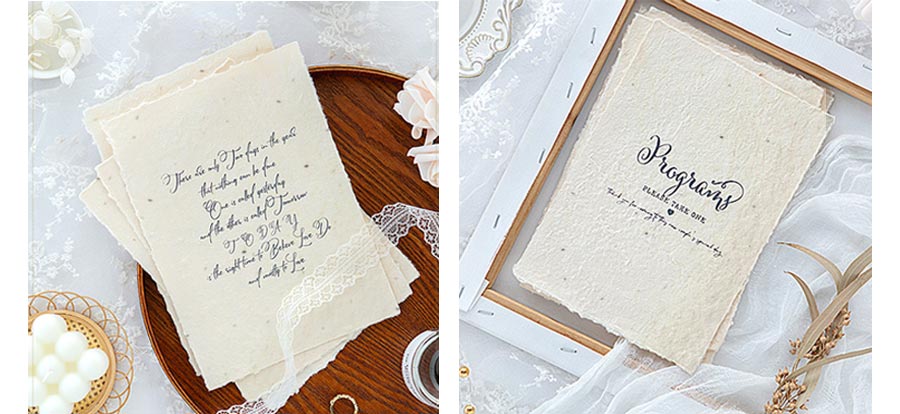 There are only Two days in the year
that nothing can be done
One is called yesterday
and the other is called Tomorrow
DAY
is the right time to Believe Love Do
and mostly to Live
Programs
PLEASE TAKE ONE
Thank you for coming to this
special day